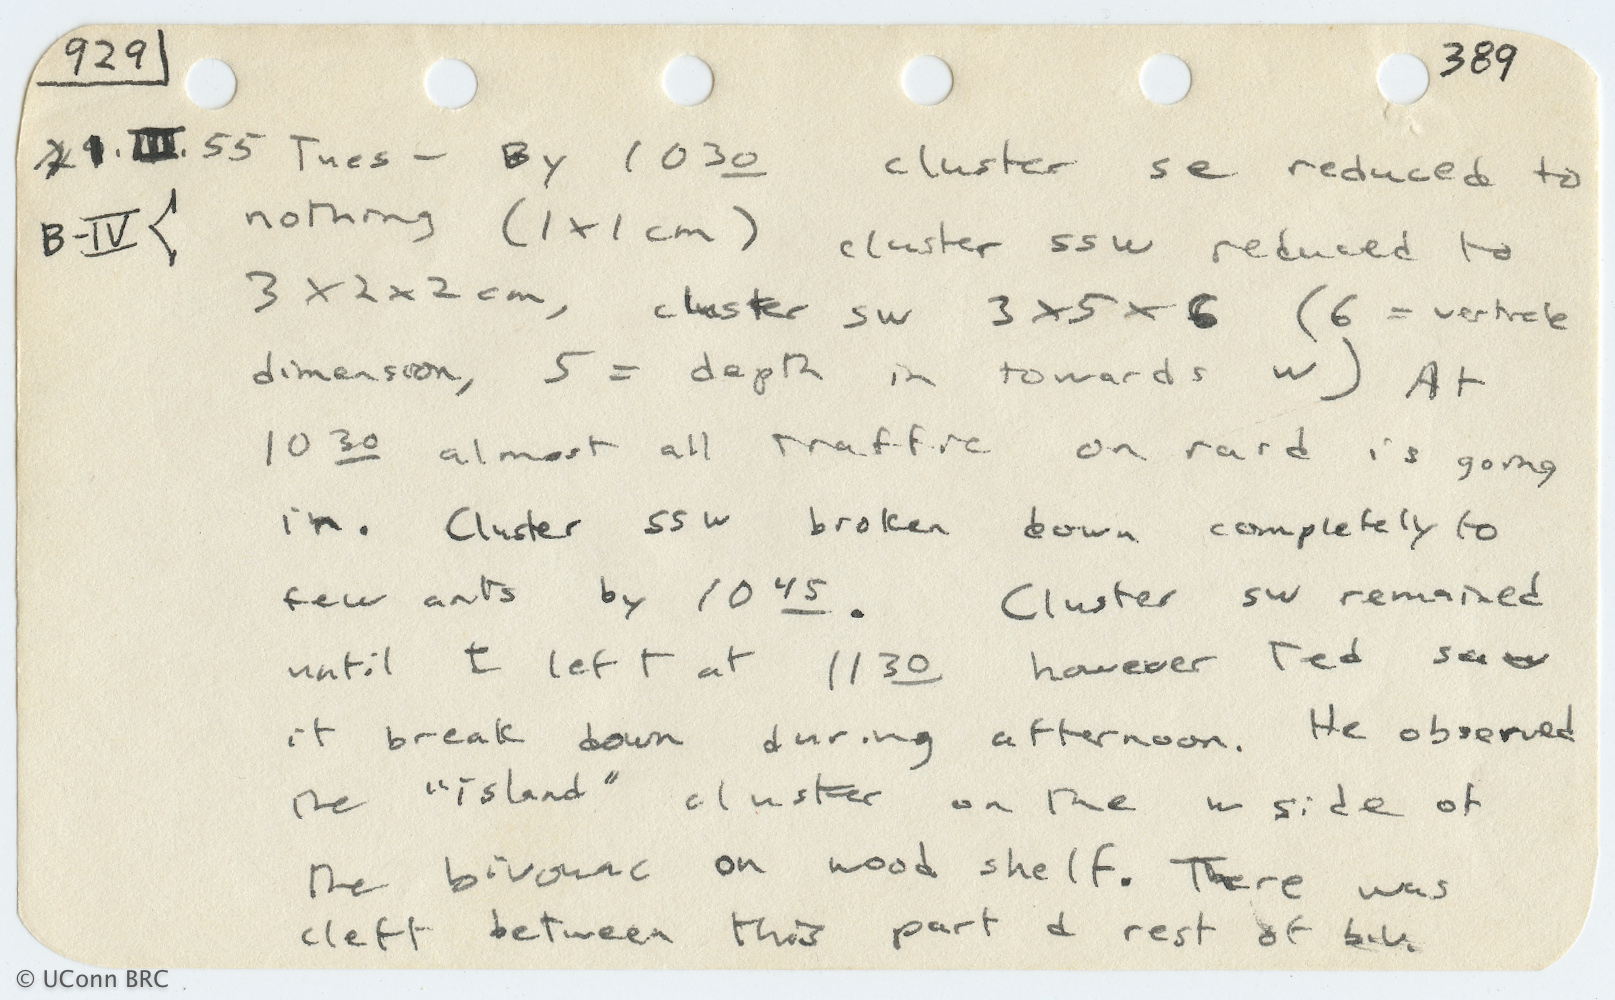 929 389
1.III.55 Tues – By 1030 cluster se reduced to
B-IV nothing (1x1 cm) cluster ssw reduced to
3x2x2 cm, cluster sw 3x5x6 (6 = verticle
dimension, 5 = depth in towards w) At
1030 almost all traffic on raid is going
in. Cluster ssw broken down completely to
few ants by 1045. Cluster sw remained
until I left at 1130 however Ted saw
it break down during afternoon. He observed
the "island" cluster on the w side of
the bivouac on wood shelf. There was
cleft between this part & rest of biv.
© UConn BRC